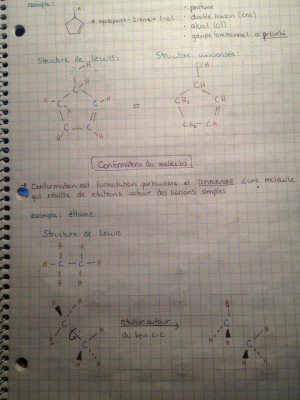 exemple:
= cyclopent-2-ène-1-ol
• pentane
• double liaison (ène)
• alcool (ol)
• groupe fonctionnel = priorité
Structure de Lewis:
Structure condensée:
=
Conformations des molécules
→ Conformation est l'orientation particulière et temporaire d'une molécule
qui résulte de rotations autour des liaisons simples
exemple: éthane
Structure de Lewis
H H
H - C - C - H
H H
rotation autour
du lien C-C